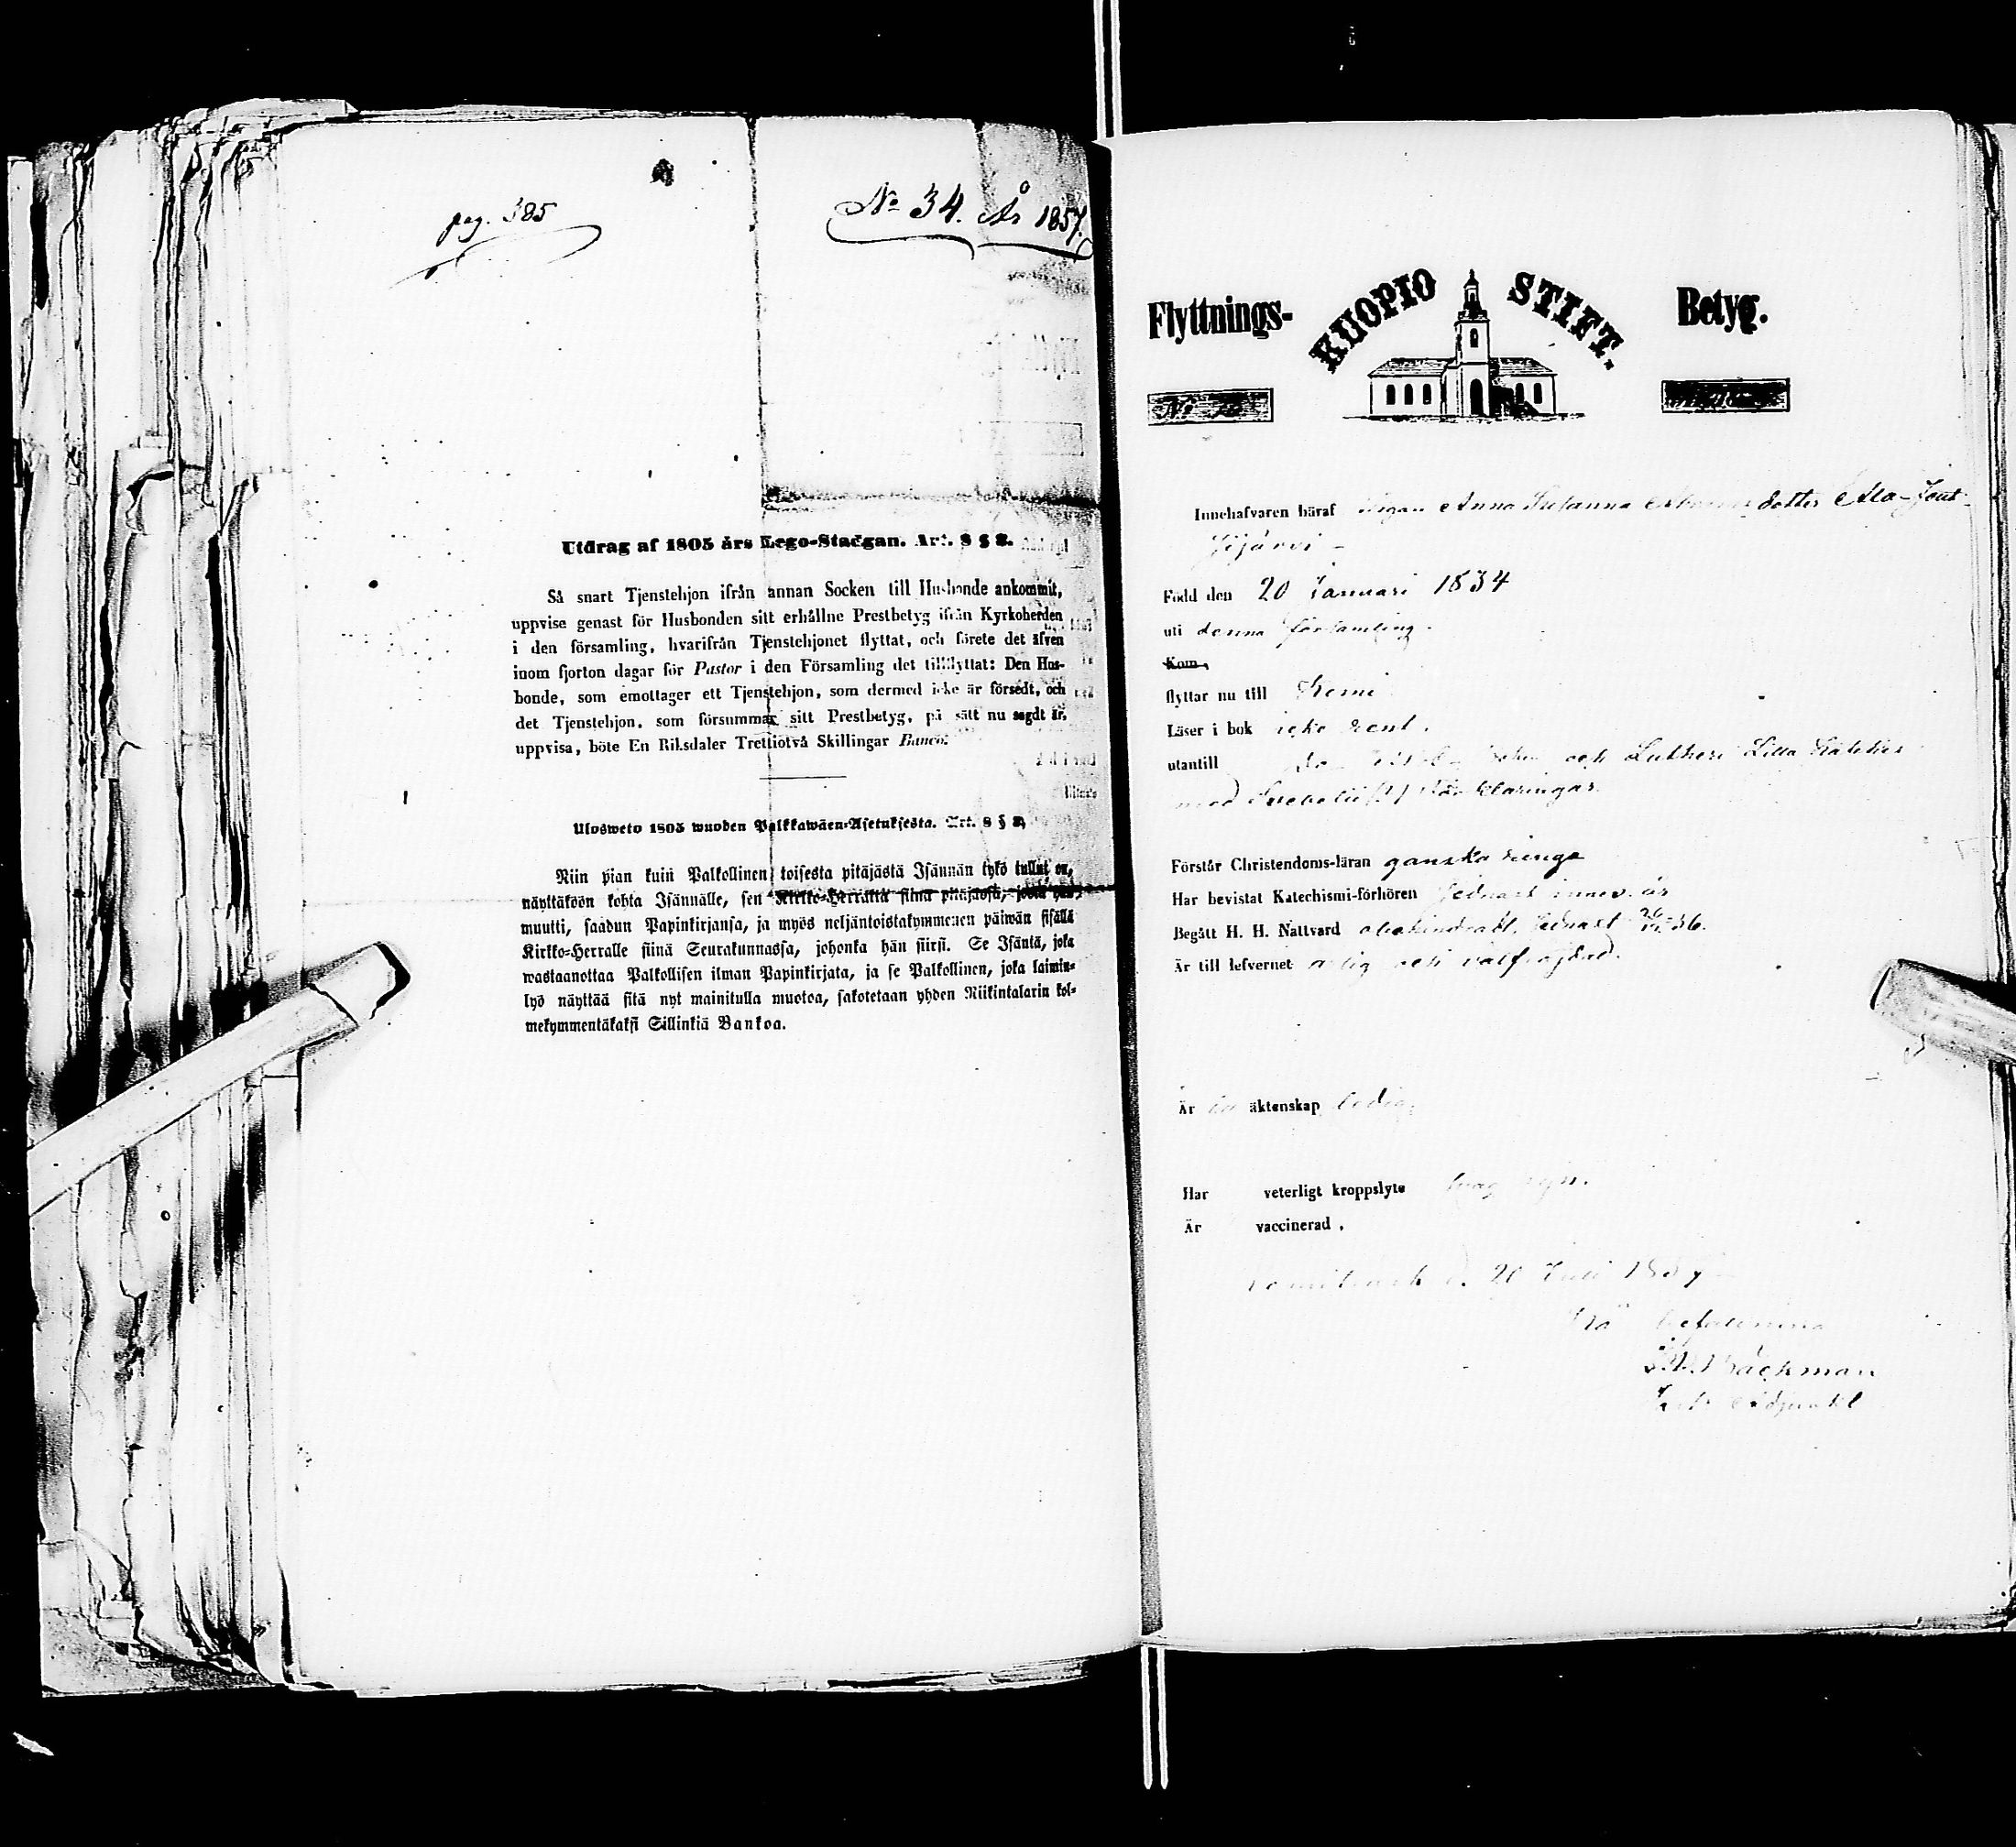 pag. 385
No 34. År 1857.
Utdrag af 1805 års Lego-Stadgan. Art. 8 § 2.
Så snart Tjenstehjon ifrån annan Socken till Husbonde ankommit,
uppvise genast för Husbonden sitt erhållne Prestbetyg ifrån Kyrkoherden
i den församling, hvarifrån Tjenstehjonet flyttat, och förete det äfven
inom fjorton dagar för Pastor i den Församling det tillflyttat: Den Hus-
bonde, som emottager ett Tjenstehjon, som dermed icke är försedt, och
det Tjenstehjon, som försummar sitt Prestbetyg, på sätt nu sagdt är,
uppvisa, böte En Riksdaler Trettiotvå Skillingar Banco.
Ulosweto 1805 wuoden Palkkawäen-Asetuksesta. Art. 8 § 2.
Niin pian kuin Palkollinen toisesta pitäjästä Isännän tykö tullut on,
näyttäköön kohta Isännälle, sen Kirkko-Herralta siinä pitäjässä, josta hän
muutti, saadun Papinkirjansa, ja myös neljäntoistakymmenen päiwän sisällä
Kirkko-Herralle siinä Seurakunnassa, johonka hän siirsi. Se Isäntä, joka
wastaanottaa Palkollisen ilman Papinkirjata, ja se Palkollinen, joka laimin-
lyö näyttää sitä nyt mainitulla muotoa, sakotetaan yhden Riikintalarin kol-
mekymmentäkaksi Sillinkiä Bankoa.
Flyttnings- KUOPIO STIFT. Betyg.
No
Innehafvaren häraf Pigan Anna Susanna dotter Ala-Jout-
sijärvi
Född den 20 Januari 1834
uti denna församling.
Kom
flyttar nu till Kemi
Läser i bok icke rent.
utantill och Lutheri Lilla Kateches
med Svebelii förklaringar.
Förstår Christendoms-läran ganska ringa
Har bevistat Katechismi-förhören sednast innev. år
Begått H. H. Nattvard obehindradt, sednast 56.
Är till lefvernet ärlig och välfrejdad.
Är äktenskap ledig.
Har veterligt kroppslyte svag syn.
Är vaccinerad.
d. 20 Juli 1857
På befallning
Backman
Adjunkt